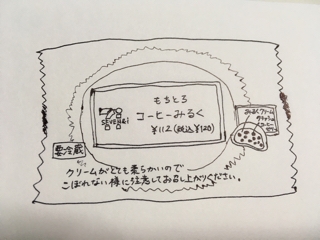 もちとろ
SEVEHEi
コーヒーみるく
¥112(税込¥120)
みるくクリーム
要冷蔵
クリームがとても柔らかいので
こぼれない様に注意してお召し上がりください。